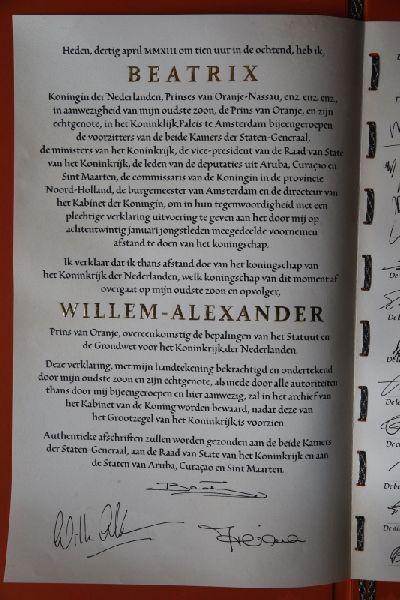 Heden, dertig april MMXIII om tien uur in de ochtend, heb ik,
BEATRIX
Koningin der Nederlanden, Prinses van Oranje-Nassau, enz. enz. enz.,
in aanwezigheid van mijn oudste zoon, de Prins van Oranje, en zijn
echtgenote, in het Koninklijk Paleis te Amsterdam bijeengeroepen
de voorzitters van de beide Kamers der Staten-Generaal,
de ministers van het Koninkrijk, de vice-president van de Raad van State
van het Koninkrijk, de leden van de deputaties uit Aruba, Curaçao en
Sint Maarten, de commissaris van de Koningin in de provincie
Noord-Holland, de burgemeester van Amsterdam en de directeur van
het Kabinet der Koningin, om in hun tegenwoordigheid met een
plechtige verklaring uitvoering te geven aan het door mij op
achtentwintig januari jongstleden meegedeelde voornemen
afstand te doen van het koningschap.
Ik verklaar dat ik thans afstand doe van het koningschap van
het Koninkrijk der Nederlanden, welk koningschap van dit moment af
overgaat op mijn oudste zoon en opvolger,
WILLEM-ALEXANDER
Prins van Oranje, overeenkomstig de bepalingen van het Statuut en
de Grondwet voor het Koninkrijk der Nederlanden.
Deze verklaring, met mijn handtekening bekrachtigd en ondertekend
door mijn oudste zoon en zijn echtgenote, als mede door alle autoriteiten
thans door mij bijeengeroepen en hier aanwezig, zal in het archief van
het Kabinet van de Koning worden bewaard, nadat deze van
het Grootzegel van het Koninkrijk is voorzien.
Authentieke afschriften zullen worden gezonden aan de beide Kamers
der Staten-Generaal, aan de Raad van State van het Koninkrijk en aan
de Staten van Aruba, Curaçao en Sint Maarten.